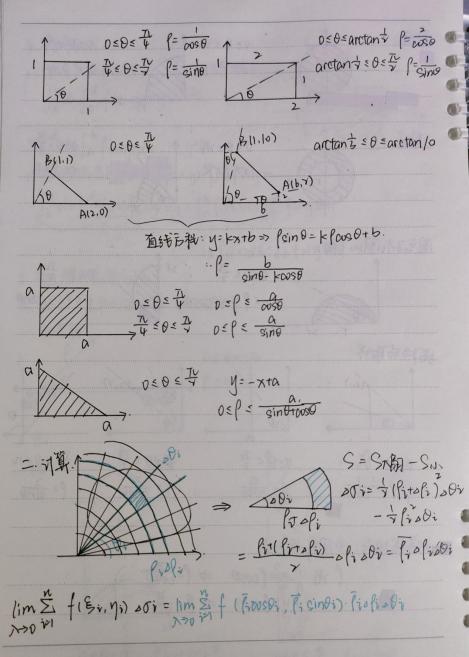 0≤θ≤π/4 ρ=1/cosθ
π/4≤θ≤π/2 ρ=1/sinθ
1
θ
1
0≤θ≤arctan1/2 ρ=2/cosθ
arctan1/2≤θ≤π/2 ρ=1/sinθ
2
1
1
θ
2
0≤θ≤π/4
B(1,1)
θ
A(2,0)
B(1,10)
arctan1/3≤θ≤arctan10
A(6,2)
θ
6
直线方程: y=kx+b ⇒ ρsinθ=kρcosθ+b.
∴ρ= b/(sinθ-kcosθ)
a
a
0≤θ≤π/4 0≤ρ≤a/cosθ
π/4≤θ≤π/2 0≤ρ≤a/sinθ
a
a
0≤θ≤π/2 y=-x+a
0≤ρ≤ a/(sinθ+cosθ)
二.计算:
△θi
ρi △ρi
⇒
△θi
ρi △ρi
S=S大扇-S小
△σi=1/2(ρi+△ρi)²△θi
-1/2ρi²△θi
=(ρi+(ρi+△ρi))/2 △ρi△θi=ρ̄i△ρi△θi
lim λ→0 Σ i=1 n f(ξi,ηi)△σi=lim λ→0 Σ i=1 n f(ρ̄icosθi,ρ̄isinθi)·ρ̄i△ρi△θi